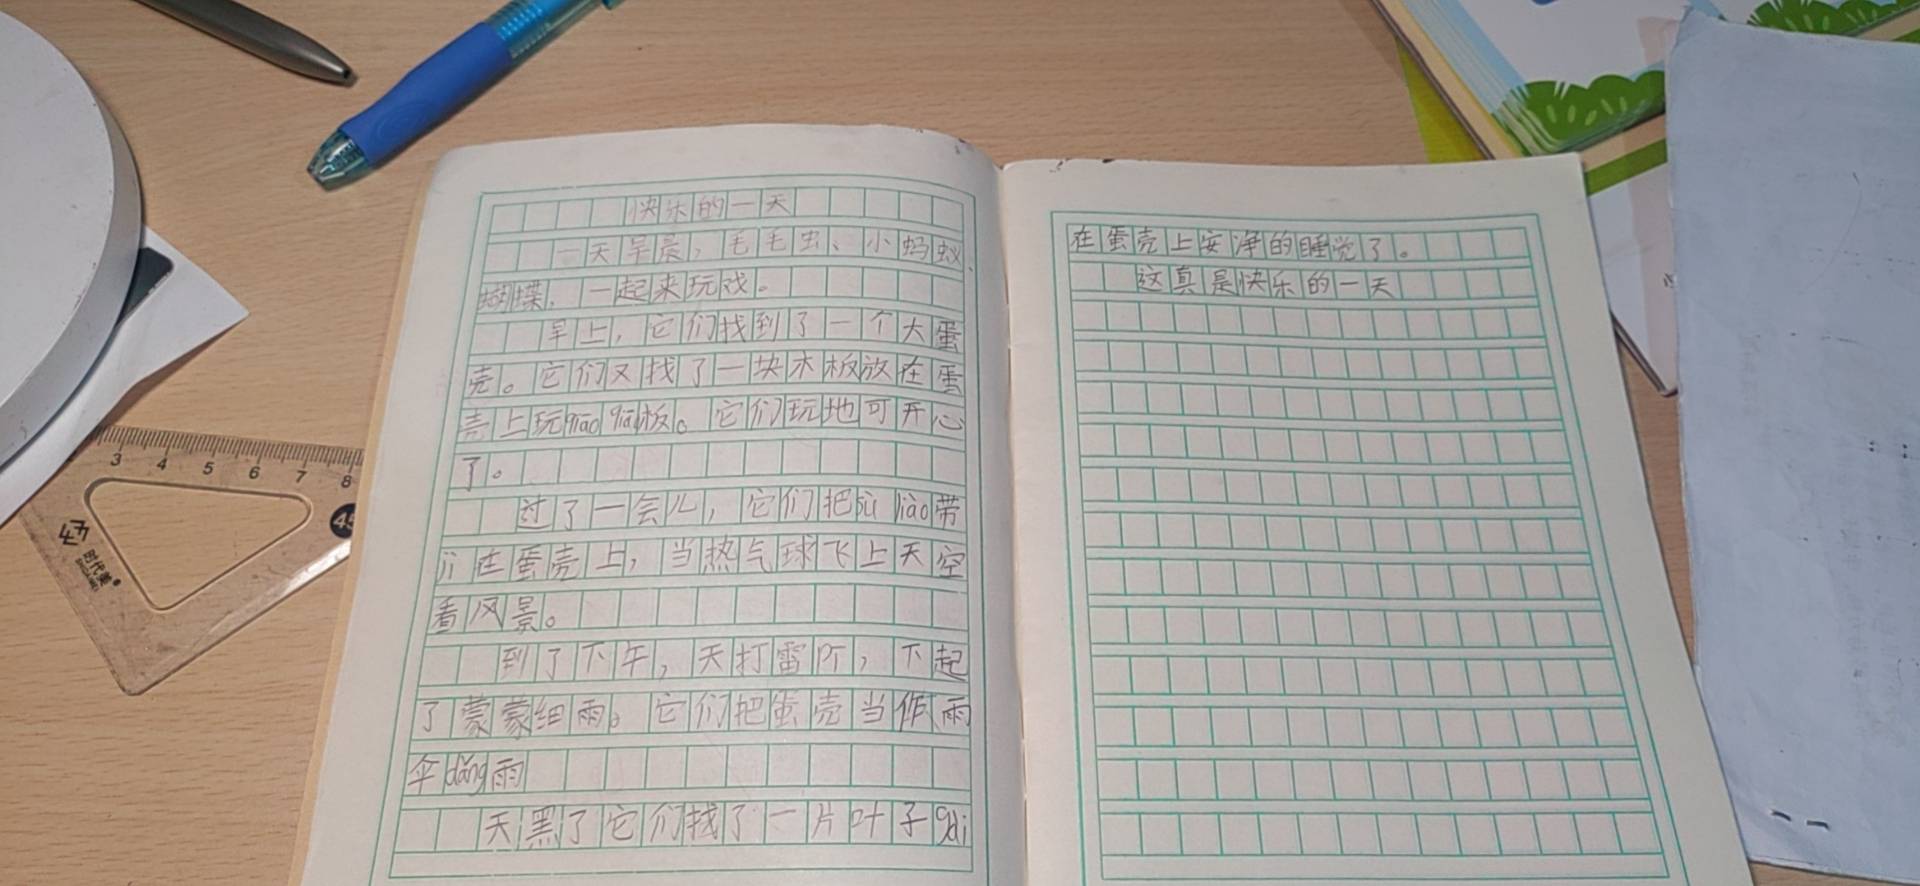 快乐的一天
一天早晨，毛毛虫、小蚂蚁、
蝴蝶，一起来玩戏。
早上，它们找到了一个大蛋
壳。它们又找了一块木板放在蛋
壳上玩qiāo qiāo板。它们玩地可开心
了。
过了一会儿，它们把sù liào带
jì在蛋壳上，当热气球飞上天空
看风景。
到了下午，天打雷了，下起
了蒙蒙细雨。它们把蛋壳当作雨
伞dǎng雨
天黑了它们找了一片叶子gài
在蛋壳上安净的睡觉了。
这真是快乐的一天
3 4 5 6 7 8
45
时代美